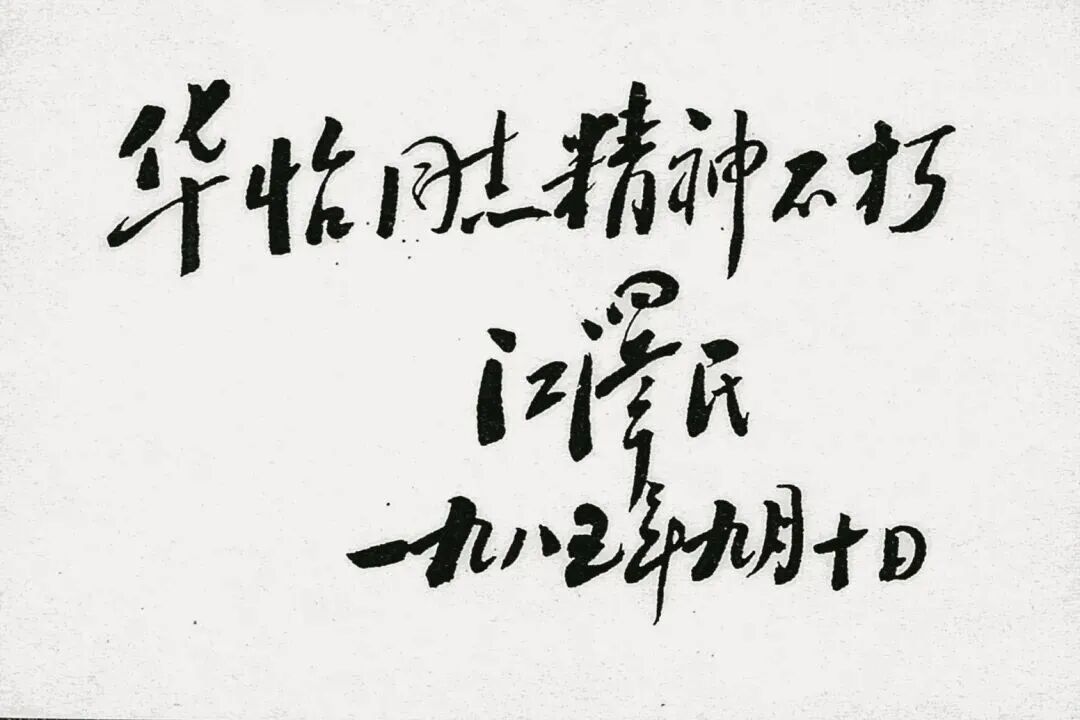 华怡同志精神不朽
江泽民
一九八五年九月十日